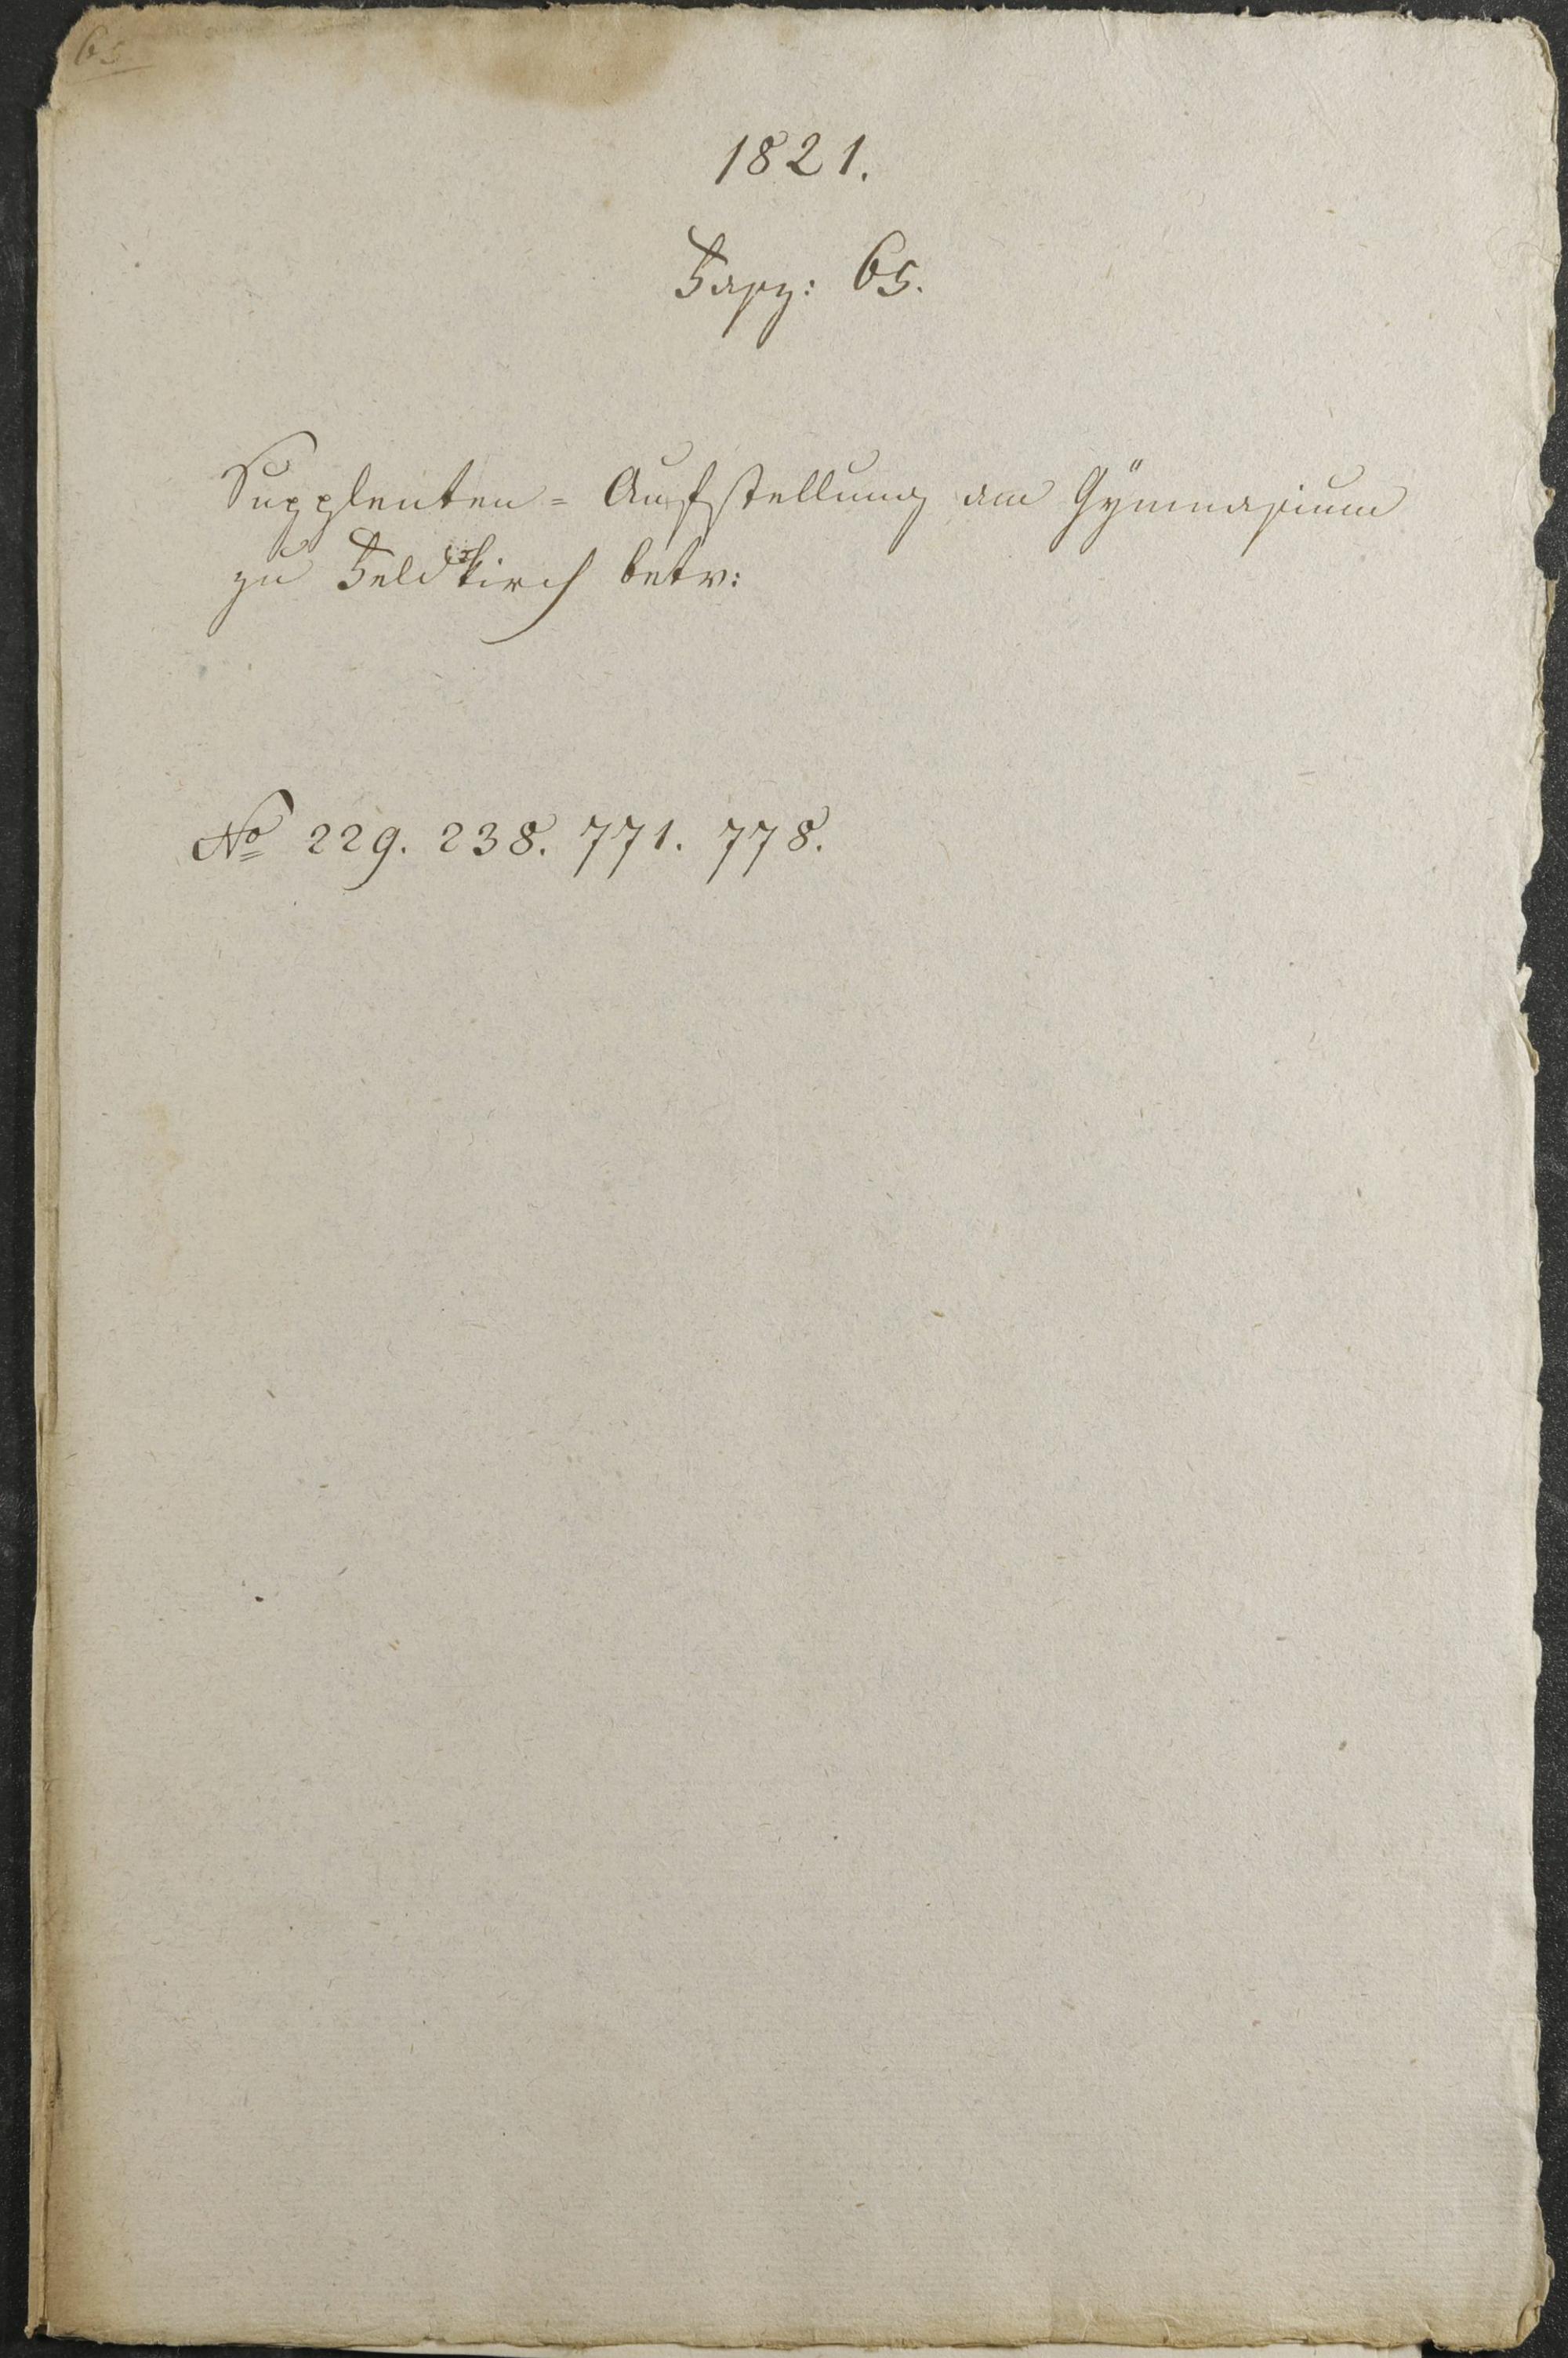 65.
1821.
Fasz: 65.
Supplenten = Aufstellung am Gÿmnasium
zu Feldkirch betr:
No 229. 238. 771. 778.